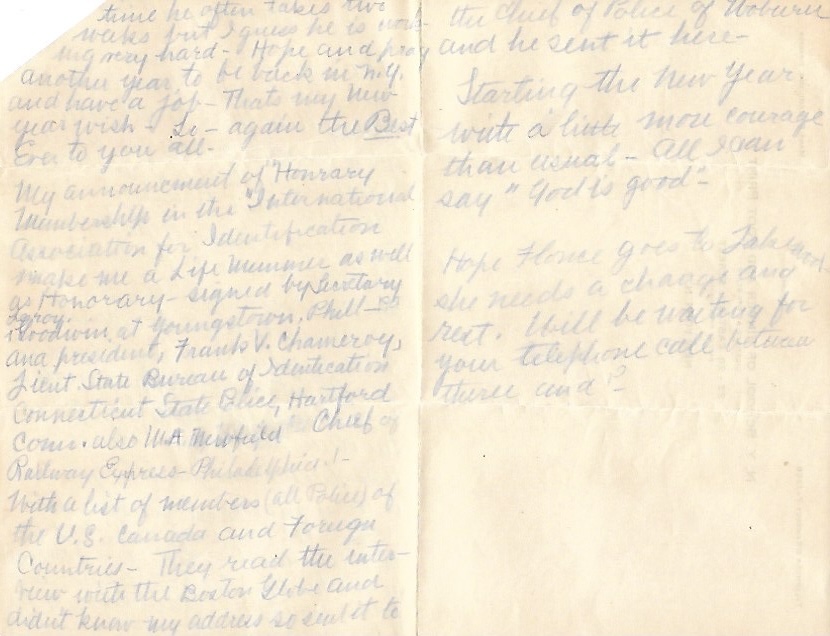 time he often takes two
weeks but I guess he is work-
ing very hard - Hope and pray
another year to be back in N.Y.
and have a job - Thats my New
year wish - So - again the Best
Ever to you all -
My announcement of "Honrary
Membership in the "International
Association for Identification
make me a Life Memmer as well
as Honorary - signed by Secretary
Leroy
Goodwin at Youngstown,
and president, Frank V. Chameroy,
Lieut State Bureau of Identification
Connecticut State Police, Hartford
Conn. also W.A. Chief of
Railway Express - Philadelphia! -
With a list of members (all Police) of
the U.S. Canada and Foreign
Countries - They read the inter-
view with the Boston Globe and
didn't know my address so sent it to
the Chief of Police of Woburn
and he sent it here -
Starting the New Year
with a little more courage
than usual - All I can
say "God is good" -
Hope goes to
she needs a change and
rest. Will be waiting for
your telephone call between
three and